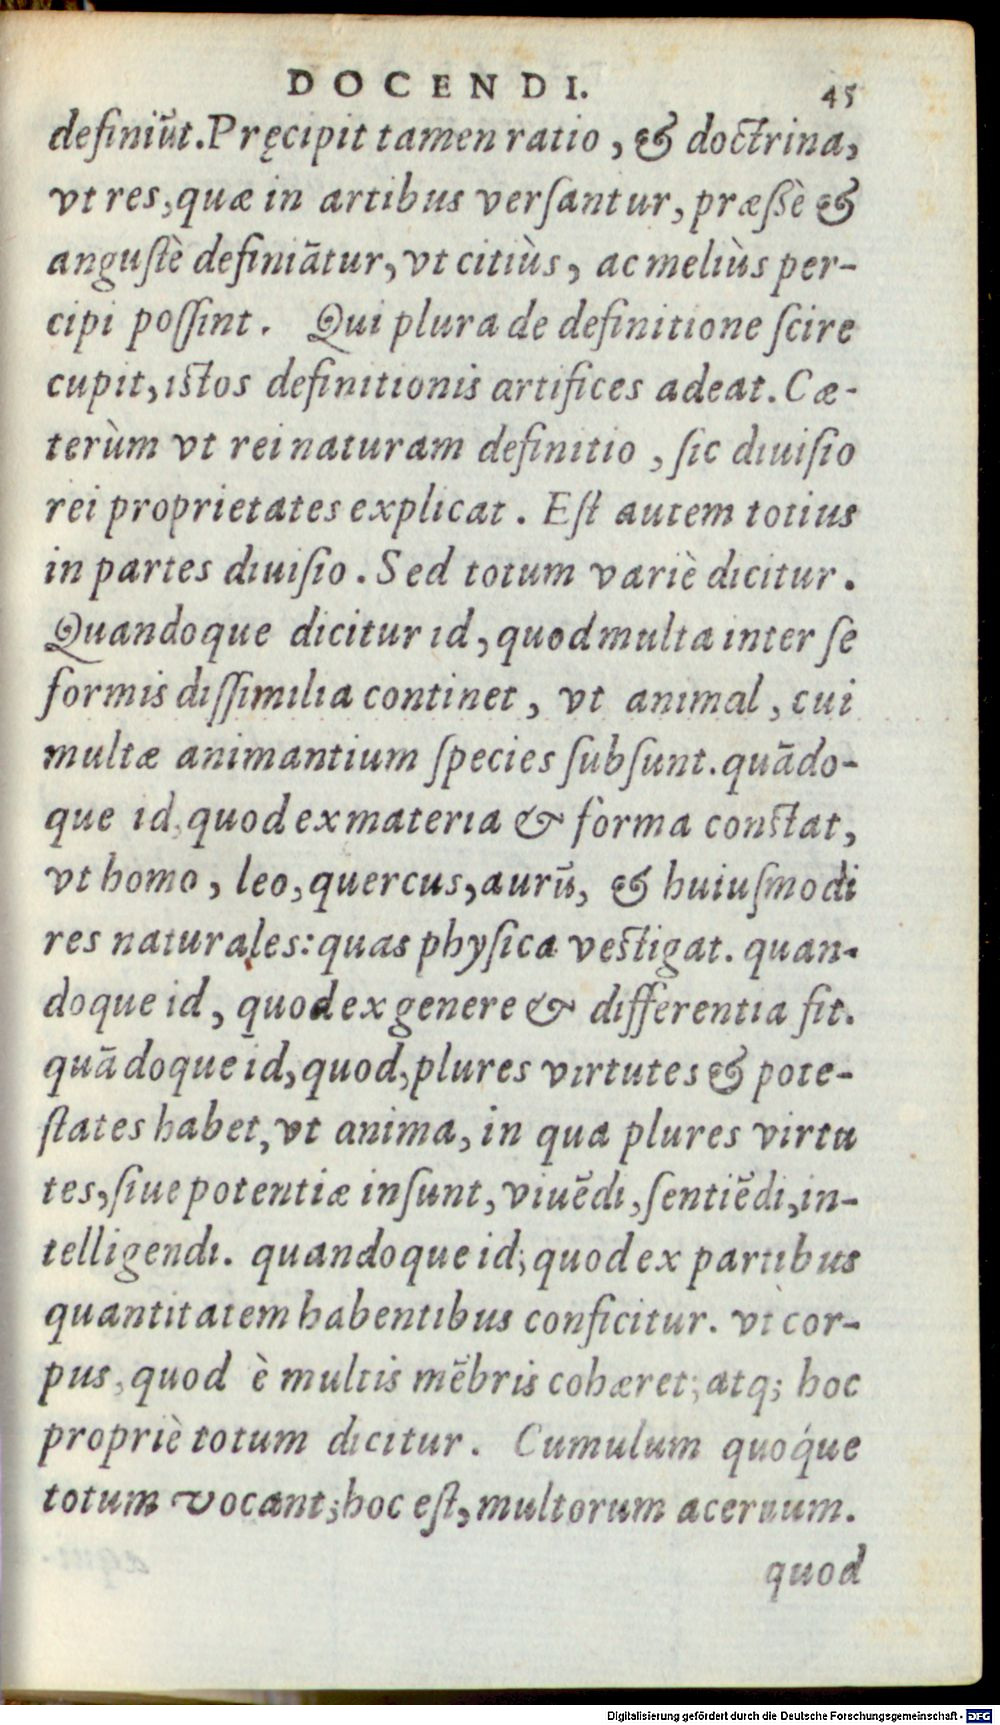 DOCENDI. 45
definiũt. Pręcipit tamen ratio, & doctrina,
vt res, quæ in artibus verſantur, præſsè &
anguſtè definiãtur, vt citiùs, ac meliùs per-
cipi poſſint. Qui plura de definitione ſcire
cupit, istos definitionis artifices adeat. Cæ-
terùm vt rei naturam definitio, ſic diuiſio
rei proprietates explicat. Eſt autem totius
in partes diuiſio. Sed totum variè dicitur.
Quandoque dicitur id, quod multa inter ſe
formis diſſimilia continet, vt animal, cui
multæ animantium ſpecies ſubſunt. quãdo-
que id, quod ex materia & forma constat,
vt homo, leo, quercus, aurũ, & huiuſmodi
res naturales: quas phyſica vestigat. quan-
doque id, quod ex genere & differentia fit.
quãdoque id, quod, plures virtutes & pote-
ſtates habet, vt anima, in qua plures virtu
tes, ſiue potentiæ inſunt, viuẽdi, ſentiẽdi, in-
telligendi. quandoque id; quod ex partibus
quantitatem habentibus conficitur. vt cor-
pus, quod è multis mẽbris cohæret; atq; hoc
propriè totum dicitur. Cumulum quoq́ue
totum vocant; hoc eſt, multorum aceruum.
quod
Digitalisierung gefördert durch die Deutsche Forschungsgemeinschaft - DFG